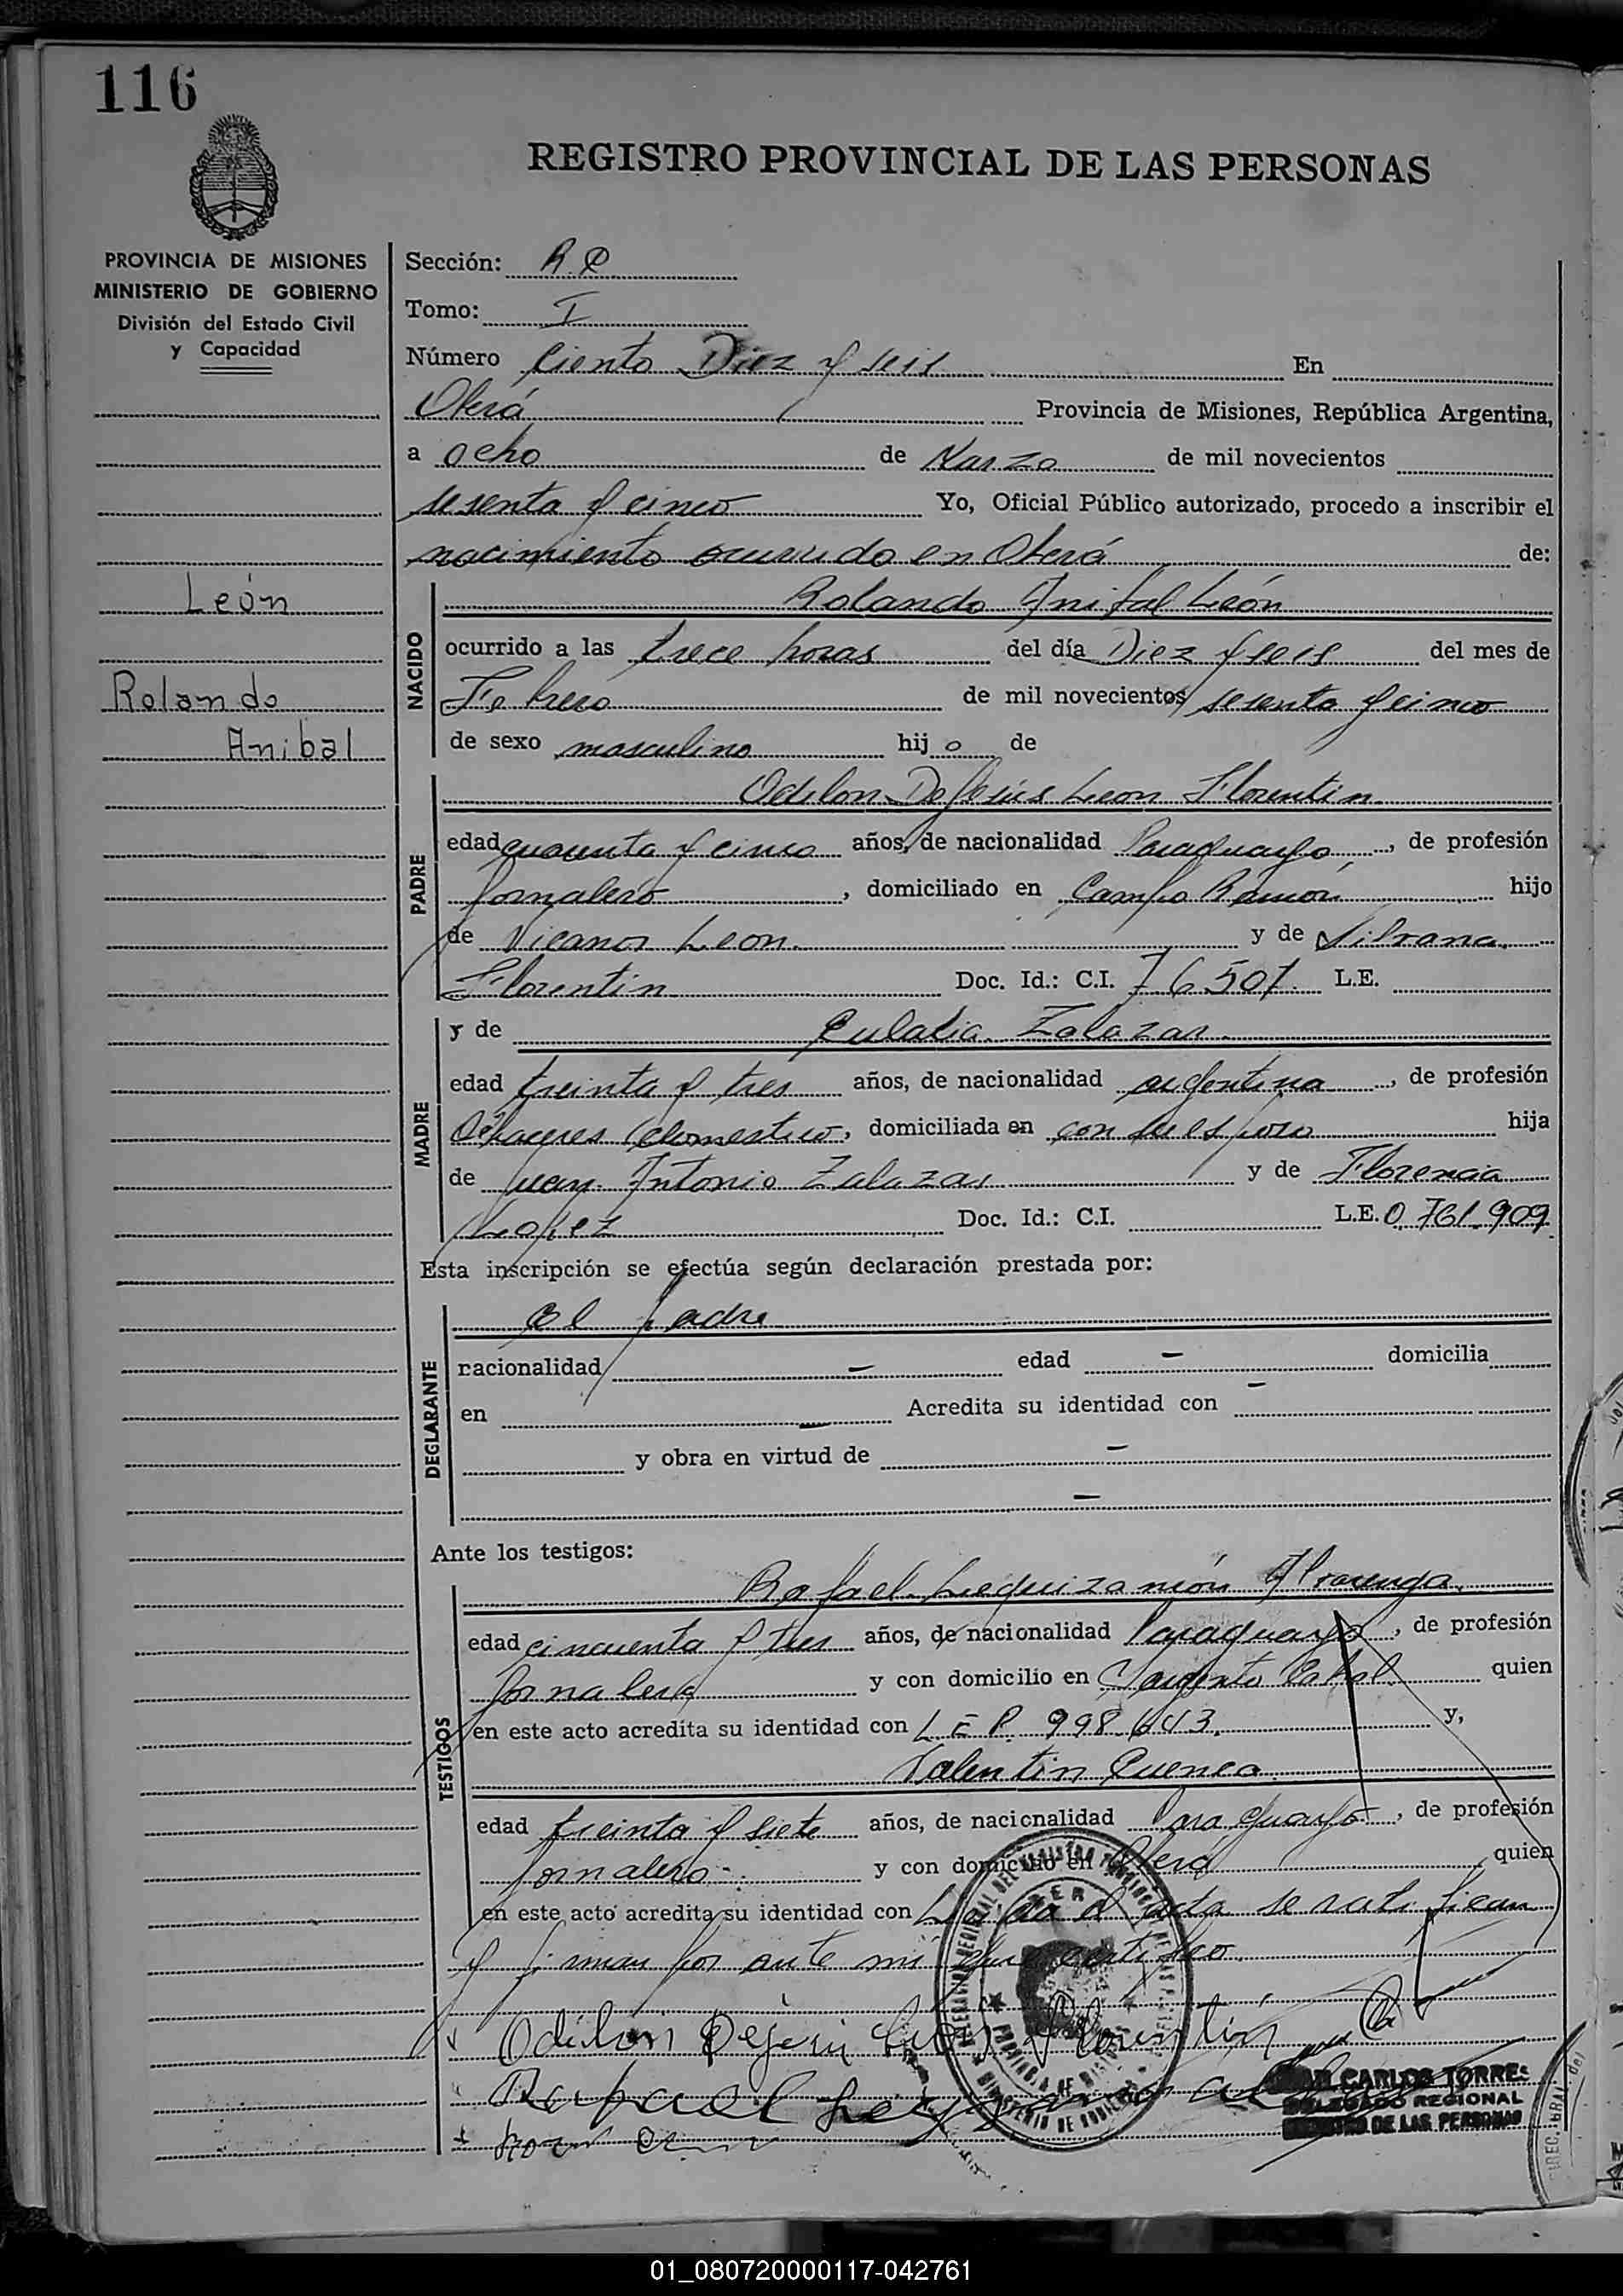 116
REGISTRO PROVINCIAL DE LAS PERSONAS
PROVINCIA DE MISIONES
MINISTERIO DE GOBIERNO
División del Estado Civil
y Capacidad
León
Rolando
Anibal
Sección: R.P.
Tomo: I
Número Ciento Diez y seis En
Oberá Provincia de Misiones, República Argentina,
a ocho de Marzo de mil novecientos
sesenta y cinco Yo, Oficial Público autorizado, procedo a inscribir el
nacimiento ocurrido en Oberá de:
NACIDO
Rolando Anibal León
ocurrido a las trece horas del día Diez y seis del mes de
Febrero de mil novecientos sesenta y cinco
de sexo masculino hijo de
PADRE
Odilon De Jesús Leon Florentin
edad cuarenta y cinco años, de nacionalidad Paraguayo, de profesión
Jornalero, domiciliado en Campo Ramón hijo
de Nicanor Leon y de Silvana
Florentin Doc. Id.: C.I. 76.501 L.E.
MADRE
y de Eulalia Zalazar
edad treinta y tres años, de nacionalidad argentina, de profesión
Qehaceres domestico, domiciliada en con su esposo hija
de Juan Antonio Zalazar y de Florencia
Lopez Doc. Id.: C.I. L.E. 0.761.909
Esta inscripción se efectúa según declaración prestada por:
DEGLARANTE
el padre
nacionalidad — edad — domicilia
en — Acredita su identidad con —
y obra en virtud de —
—
Ante los testigos:
TESTIGOS
Rafael Leguizamón Alvarenga
edad cincuenta y tres años, de nacionalidad Paraguayo, de profesión
Jornalero y con domicilio en Sargento Cabral quien
en este acto acredita su identidad con 998.643. y,
Valentin Cuenca
edad treinta y siete años, de nacionalidad Paraguayo, de profesión
Jornalero y con domicilio en Oberá quien
en este acto acredita su identidad con Leida el acta se ratifican
y firman por ante mi que certifico
Odilon Dejesu Leon Florentin
Rafael
CARLOS TORRES
DELEGADO REGIONAL
REGISTRO DE LAS PERSONAS
01_080720000117-042761